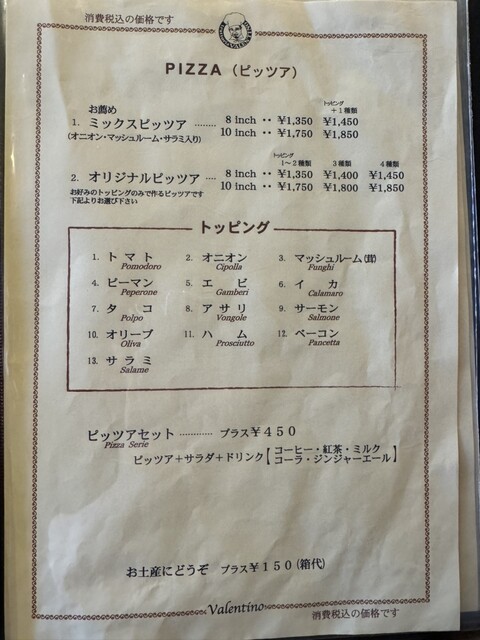 消費税込の価格です
PIZZA (ピッツア)
お薦め
トッピング
＋1種類
1. ミックスピッツア ········ 8 inch ·· ¥1,350 ¥1,450
(オニオン・マッシュルーム・サラミ入り) 10 inch ·· ¥1,750 ¥1,850
トッピング
1～2種類 3種類 4種類
2. オリジナルピッツア ······ 8 inch ·· ¥1,350 ¥1,400 ¥1,450
お好みのトッピングのみで作るピッツアです 10 inch ·· ¥1,750 ¥1,800 ¥1,850
下記よりお選び下さい
トッピング
1. トマト 2. オニオン 3. マッシュルーム(茸)
Pomodoro Cipolla Funghi
4. ピーマン 5. エビ 6. イカ
Peperone Gamberi Calamaro
7. タコ 8. アサリ 9. サーモン
Polpo Vongole Salmone
10. オリーブ 11. ハム 12. ベーコン
Oliva Prosciutto Pancetta
13. サラミ
Salame
ピッツアセット ············ プラス¥450
Pizza Serie
ピッツア＋サラダ＋ドリンク【コーヒー・紅茶・ミルク
コーラ・ジンジャーエール】
お土産にどうぞ プラス¥150(箱代)
Valentino
消費税込の価格です